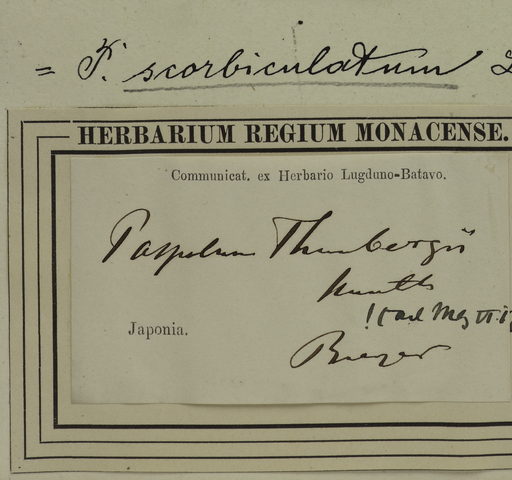 = P. scorbiculatum
HERBARIUM REGIUM MONACENSE.
Communicat. ex Herbario Lugduno-Batavo.
Paspalum Thunbergii
Kunth
Japonia.
Buerger